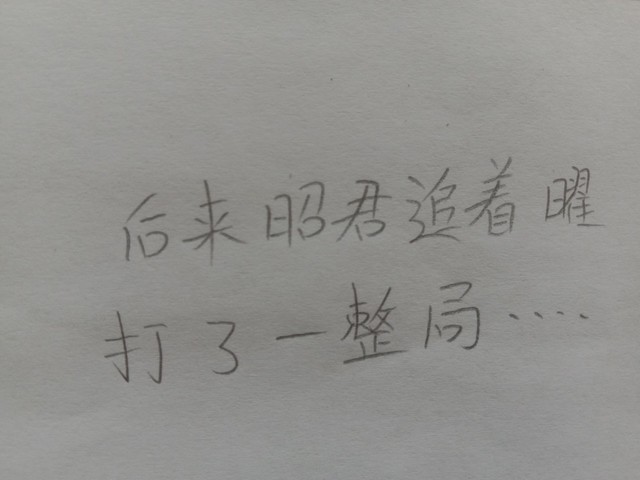 后来昭君追着曜
打了一整局····